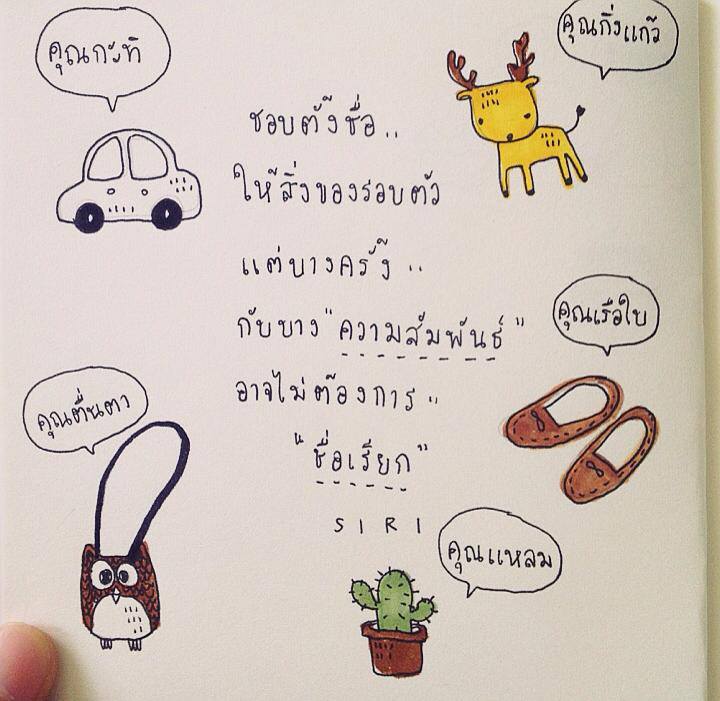 คุณกะทิ
คุณกิ่งแก้ว
ชอบตั้งชื่อ..
ให้สิ่งของรอบตัว
แต่บางครั้ง..
กับบาง "ความสัมพันธ์"
อาจไม่ต้องการ..
"ชื่อเรียก"
SIRI
คุณเรือใบ
คุณตื่นตา
คุณแหลม